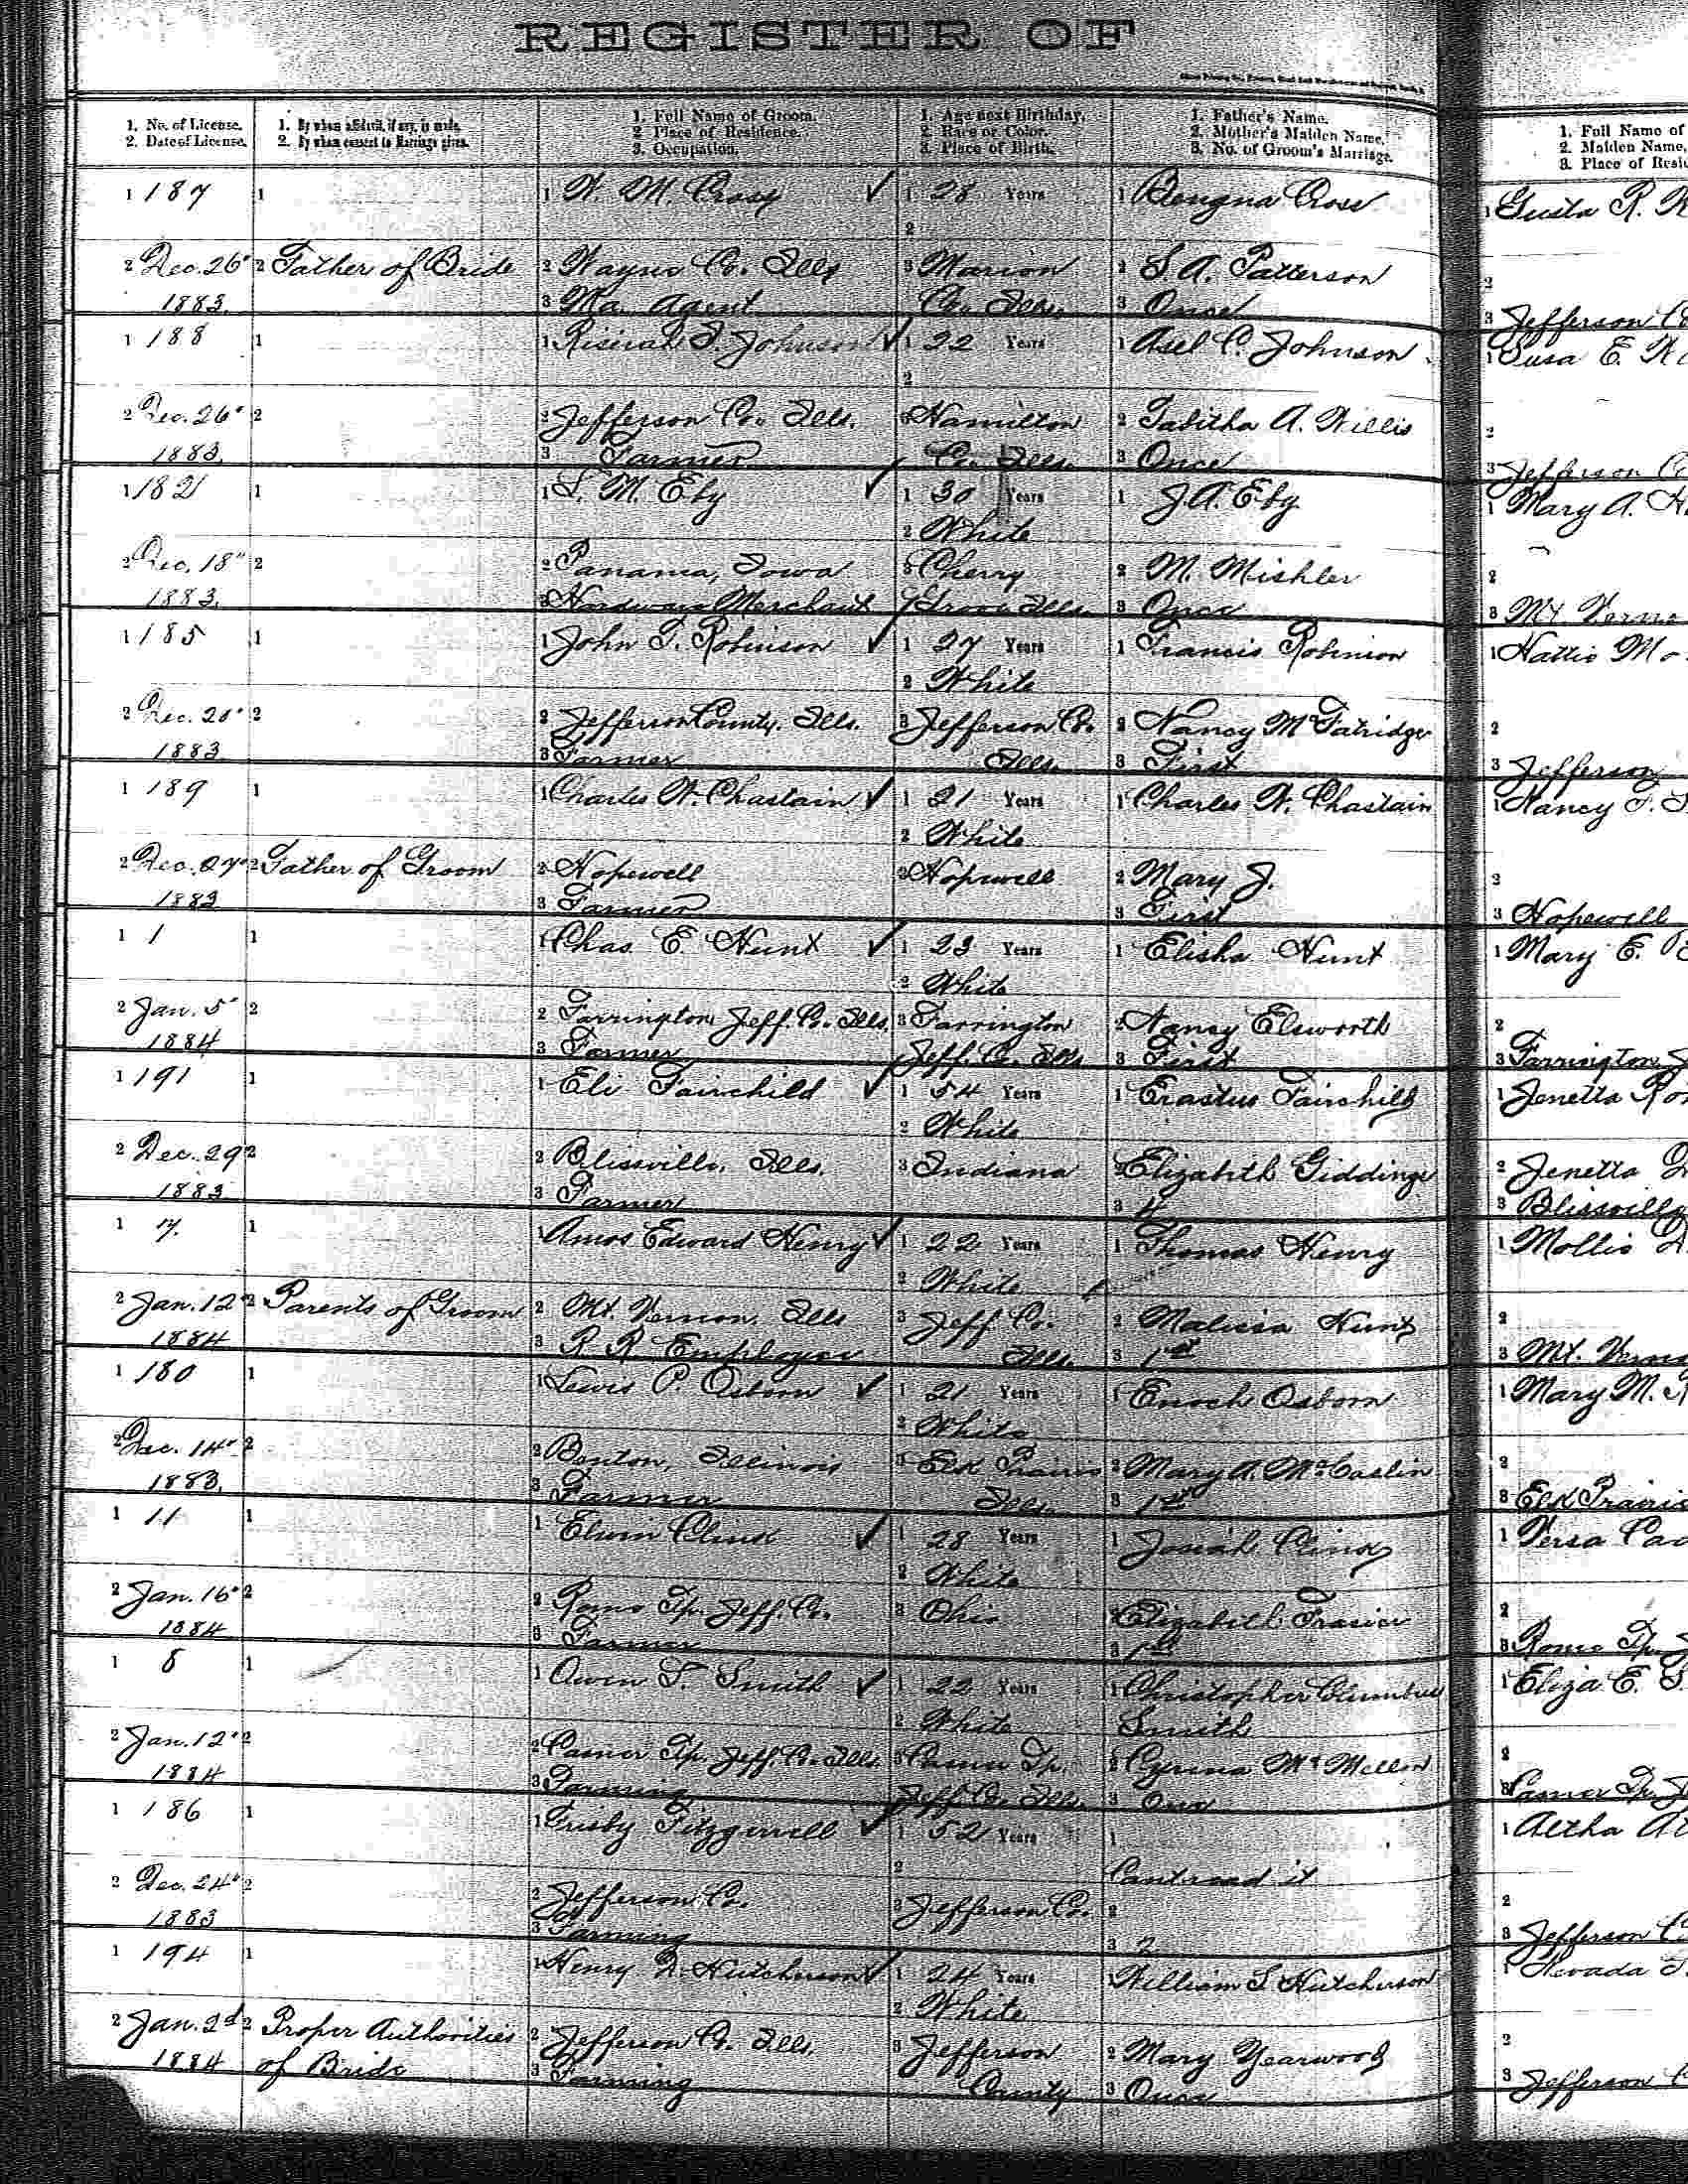 REGISTER OF
1. No. of License.
2. Date of License.
1. By whom affidavit, if any, is made.
2. By whom consent to Marriage given.
1. Full Name of Groom.
2. Place of Residence.
3. Occupation.
1. Age next Birthday.
2. Race or Color.
3. Place of Birth.
1. Father's Name.
2. Mother's Maiden Name.
3. No. of Groom's Marriage.
1. Full Name of
2. Maiden Name,
3. Place of Resid
1 187 1 1 W. M. Cross ✓ 1 28 Years 1 Cross 1 Gusta R.
2
2 Dec. 26" 2 Father of Bride 2 Wayne Co. Ills 3 Marion 2 S. A. Patterson 2
1883. 3 Agent Co. Ills. 3 Once 3 Jefferson
1 188 1 1 Johnson ✓ 1 22 Years 1 Asel C. Johnson 1 Susa E.
2
2 Dec. 26" 2 2 Jefferson Co. Ills. 3 Hamilton 2 Tabitha A. Willis 2
1883. 3 Farmer Co. Ills. 3 Once 3 Jefferson
1 182 1 1 S. M. Eby ✓ 1 30 Years 1 J. A. Eby 1 Mary A.
2 White
2 Dec. 18" 2 2 Panama, Iowa 3 Cherry 2 M. Mishler 2
1883. 3 Hardware Merchant Grove Ills. 3 Once 3 Mt. Verno
1 185 1 1 John T. Robinson ✓ 1 27 Years 1 Francis Robinson 1 Hattie
2 White
2 Dec. 2 2 Jefferson County. Ills. 3 Jefferson Co. 2 Nancy McFatridge 2
1883 3 Farmer Ills. 3 First 3 Jefferson
1 189 1 1 Charles W. Chastain ✓ 1 21 Years 1 Charles W. Chastain 1 Nancy
2 White
2 Dec. 27" 2 Father of Groom 2 Hopewell 3 Hopewell 2 Mary J. 2
1883 3 Farmer 3 First 3 Hopewell
1 1 1 1 Chas. E. Hunt ✓ 1 23 Years 1 Elisha Hunt 1 Mary E.
2 White
2 Jan. 5" 2 2 Farrington Jeff. Co. Ills. 3 Farrington 2 Nancy Elsworth 2
1884 3 Farmer Jeff. Co. Ills. 3 First 3 Farrington
1 191 1 1 Eli Fairchild ✓ 1 54 Years 1 Erastus Fairchild 1 Jenetta
2 White
2 Dec. 29 2 2 Blissville, Ills. 3 Indiana 2 Elizabeth Giddings 2 Jenetta
1883 3 Farmer 3 4 3 Blissville
1 7. 1 1 Amos Edward Henry ✓ 1 22 Years 1 Thomas Henry 1 Mollie
2 White
2 Jan. 12" 2 Parents of Groom 2 Mt. Vernon, Ills 3 Jeff. Co. 2 Malissa Hunt 2
1884 3 R R Employee Ills. 3 1st 3 Mt. Verno
1 180 1 1 Lewis P. Osborn ✓ 1 21 Years 1 Enoch Osborn 1 Mary M.
2 White
2 Dec. 14" 2 2 Benton, Illinois 3 Elk Prairie 2 Mary A. McCaslin 2
1883. 3 Farmer Ills. 3 1st 3 Elk Prairie
1 11 1 1 Elwin ✓ 1 28 Years 1 Josiah 1
2 White
2 Jan. 16" 2 2 Rome Tp. Jeff. Co. 3 Ohio 2 Elizabeth Frasier 2
1884 3 Farmer 3 1st 3 Rome Tp.
1 8 1 1 Owen T. Smith ✓ 1 22 Years 1 Christopher Columbus 1 Eliza E.
2 White Smith
2 Jan. 12" 2 2 Casner Tp. Jeff. Co. Ills 3 Casner Tp. 2 2
1884 3 Farming Jeff. Co. Ills. 3 One 3 Casner Tp.
1 186 1 1 Frisby Fitzgerrell ✓ 1 52 Years 1 1 Aetha
2 Cant read it
2 Dec. 24" 2 2 Jefferson Co. 3 Jefferson Co. 2 2
1883 3 Farming 3 2 3 Jefferson
1 194 1 1 Henry Hutcherson ✓ 1 24 Years 1 William S. Hutcherson 1 Nevada
2 White
2 Jan. 2d 2 Proper Authorities 2 Jefferson Co. Ills. 3 Jefferson 2 Mary Yearwood 2
1884 of Bride 3 Farming County 3 Once 3 Jefferson